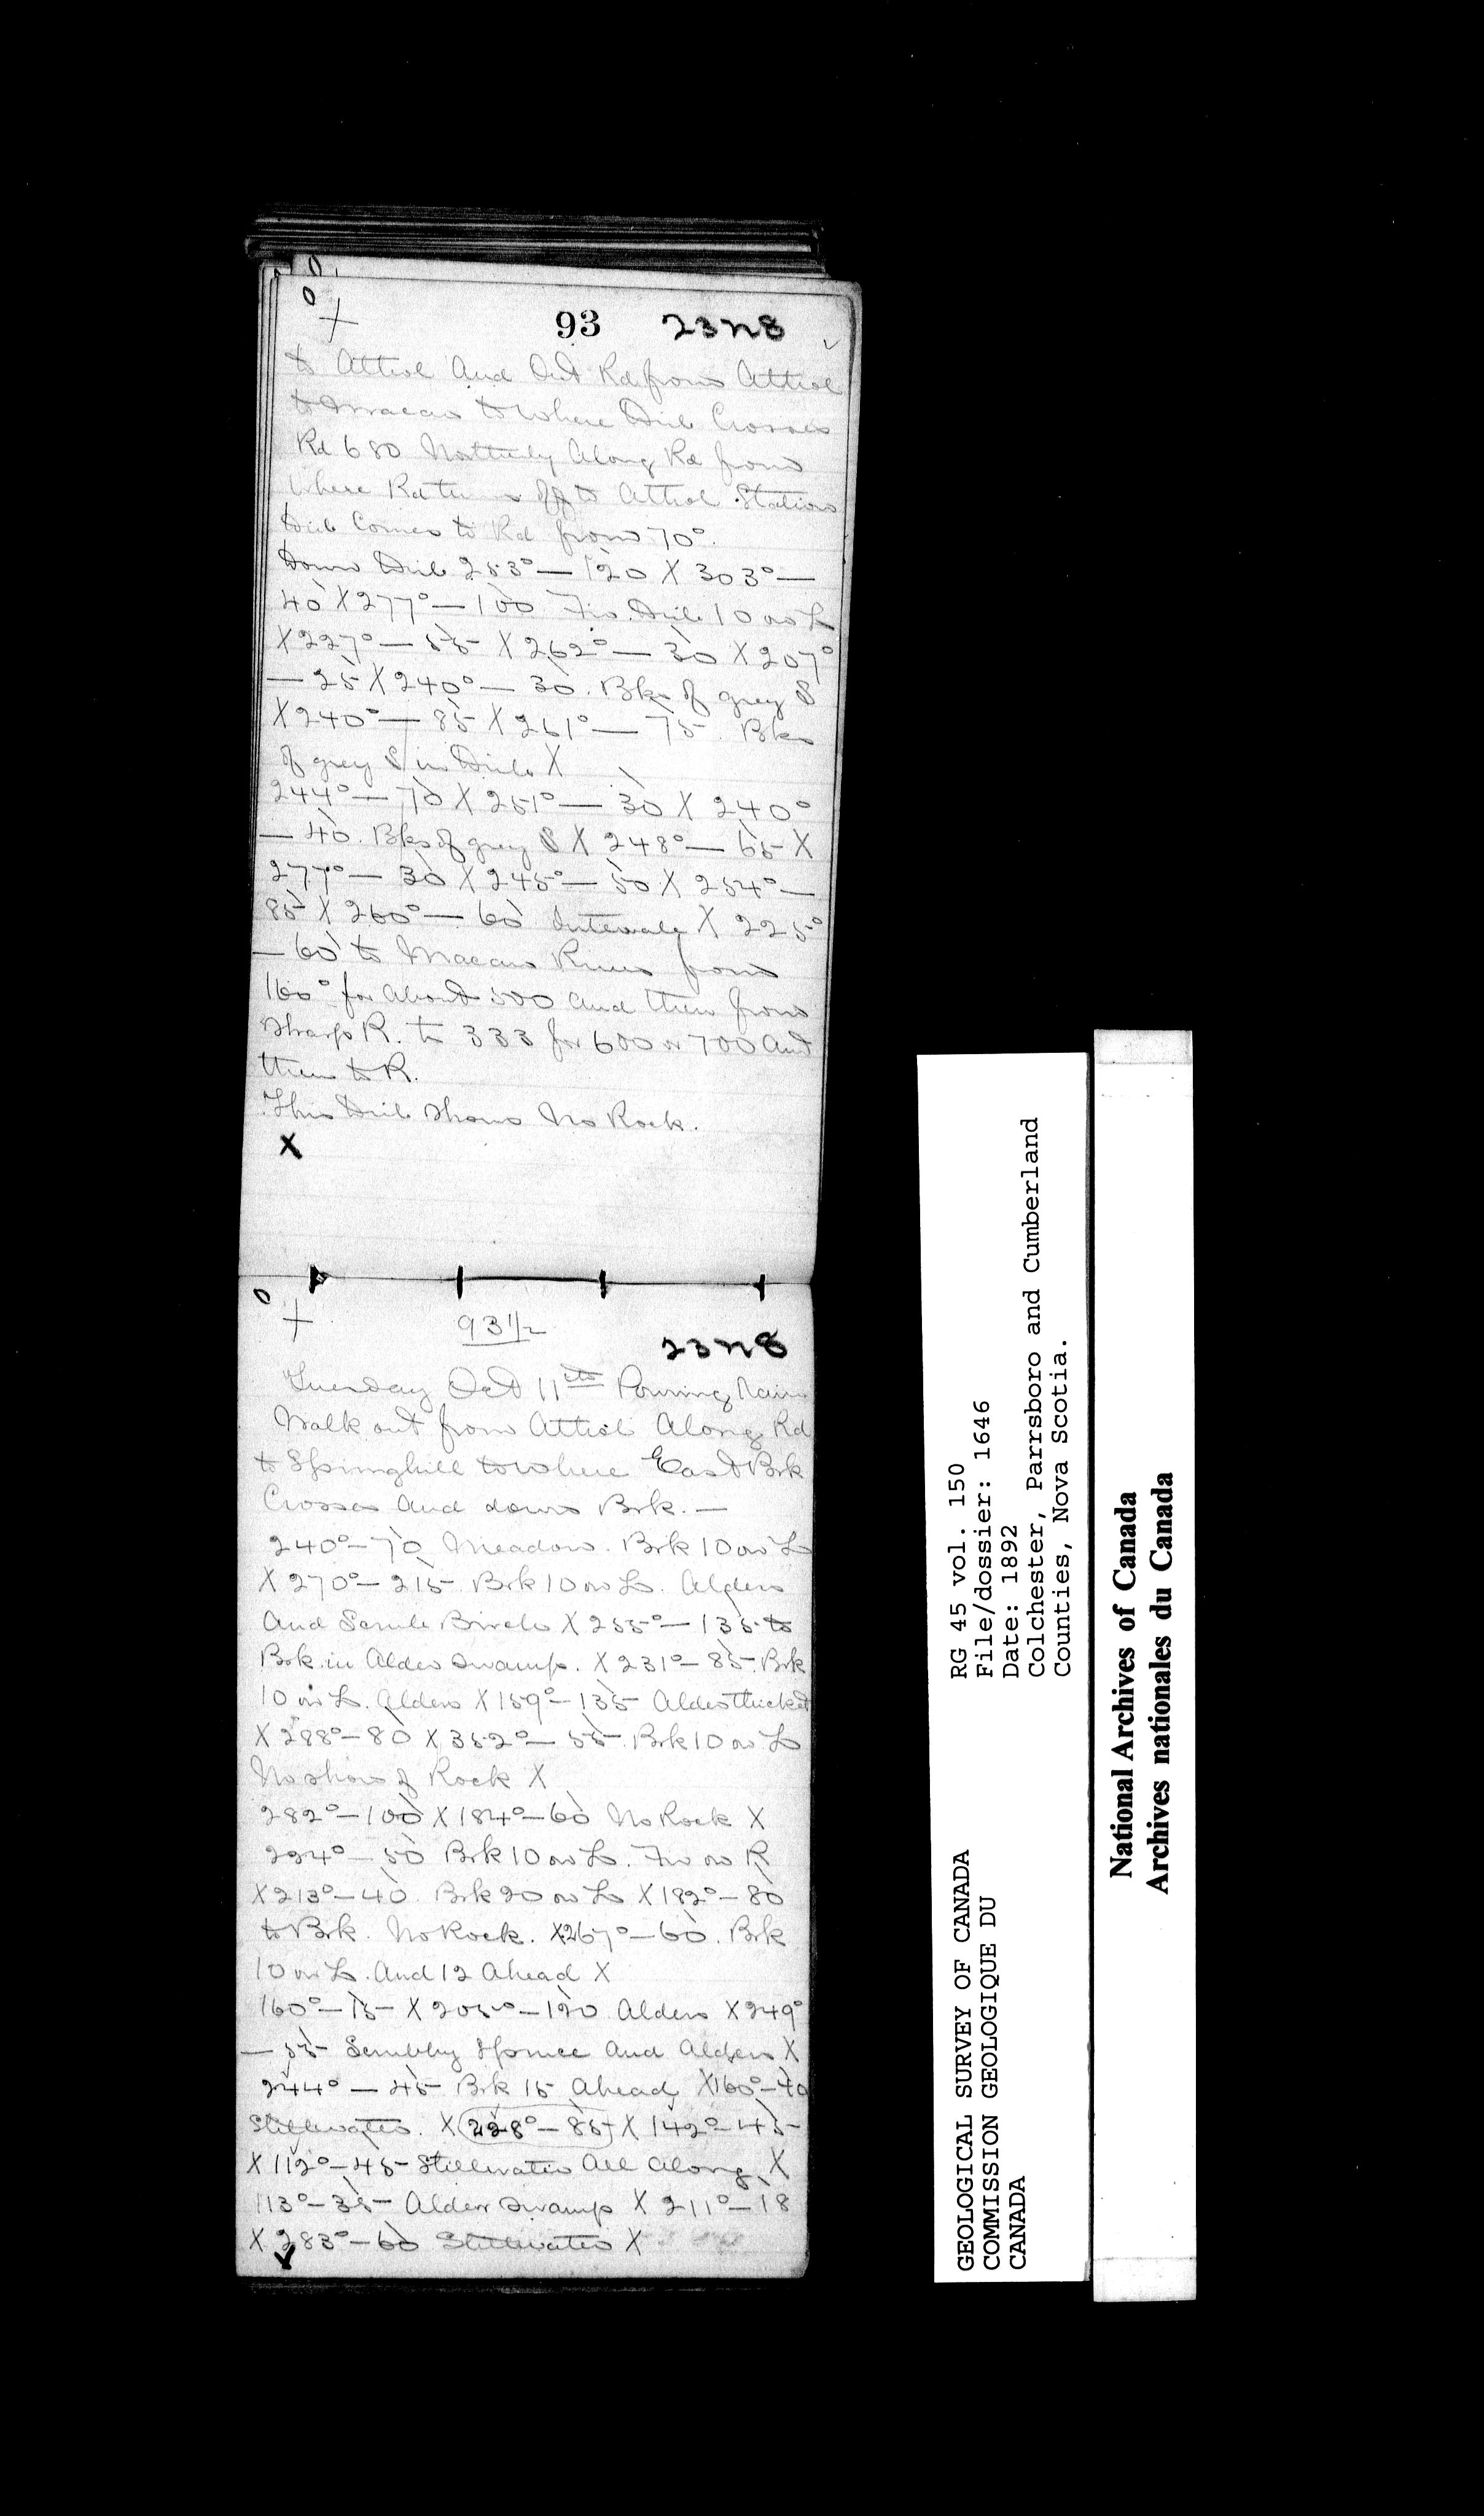 93 2328
to Athol and Out Rd from Athol
to Maccan to where Drib Crosses
Rd 680 Northerly Along Rd from
where Rd turns off to Athol Station
Drib Comes to Rd from 70°.
Down Drib 253° — 120 X 303° —
40 X 277° — 100 Fir. Drib 10 on L
X 227° — 55 X 262° — 30 X 207°
— 25 X 240° — 30. Bks of grey S
X 240° — 85 X 261° — 75. Bks
of grey S in Drib X
244° — 70 X 251° — 30 X 240°
— 40. Bks of grey S X 248° — 65 X
277° — 30 X 245° — 50 X 254° —
85 X 260° — 60 Intervale X 225°
— 60 to Maccan River from
160° for about 500 and then from
Sharp R. to 333 for 600 or 700 and
then to R.
This Drib shows No Rock.
X
93 1/2
2328
Tuesday Oct 11th Pouring Rain
Walk out from Athol Along Rd
to Springhill to where East Brk
Crosses and down Brk. —
240° — 70 Meadow. Brk 10 on L
X 270° — 215 Brk 10 on L. Alders
and Scrub Birch X 255° — 135 to
Brk in Alder swamp. X 231° — 85. Brk
10 on L. Alders X 159° — 135 Alder thicket
X 288° — 80 X 352° — 55. Brk 10 on L
No show of Rock X
282° — 100 X 184° — 60 No Rock X
224° — 50 Brk 10 on L. Fir on R
X 213° — 40. Brk 20 on L X 192° — 80
to Brk. No Rock. X 267° — 60. Brk
10 on L. And 12 Ahead X
160° — 15 X 205° — 120 Alders X 249°
— 55 Scrubby Spruce and Alders X
244° — 45 Brk 15 Ahead X 160° — 40
Stillwater. X 228° — 85 X 142° — 45
X 112° — 45 Stillwater All Along X
113° — 35 Alder swamp X 211° — 18
X 283° — 60 Stillwater X
GEOLOGICAL SURVEY OF CANADA
COMMISSION GEOLOGIQUE DU
CANADA
RG 45 vol. 150
File/dossier: 1646
Date: 1892
Colchester, Parrsboro and Cumberland
Counties, Nova Scotia.
National Archives of Canada
Archives nationales du Canada